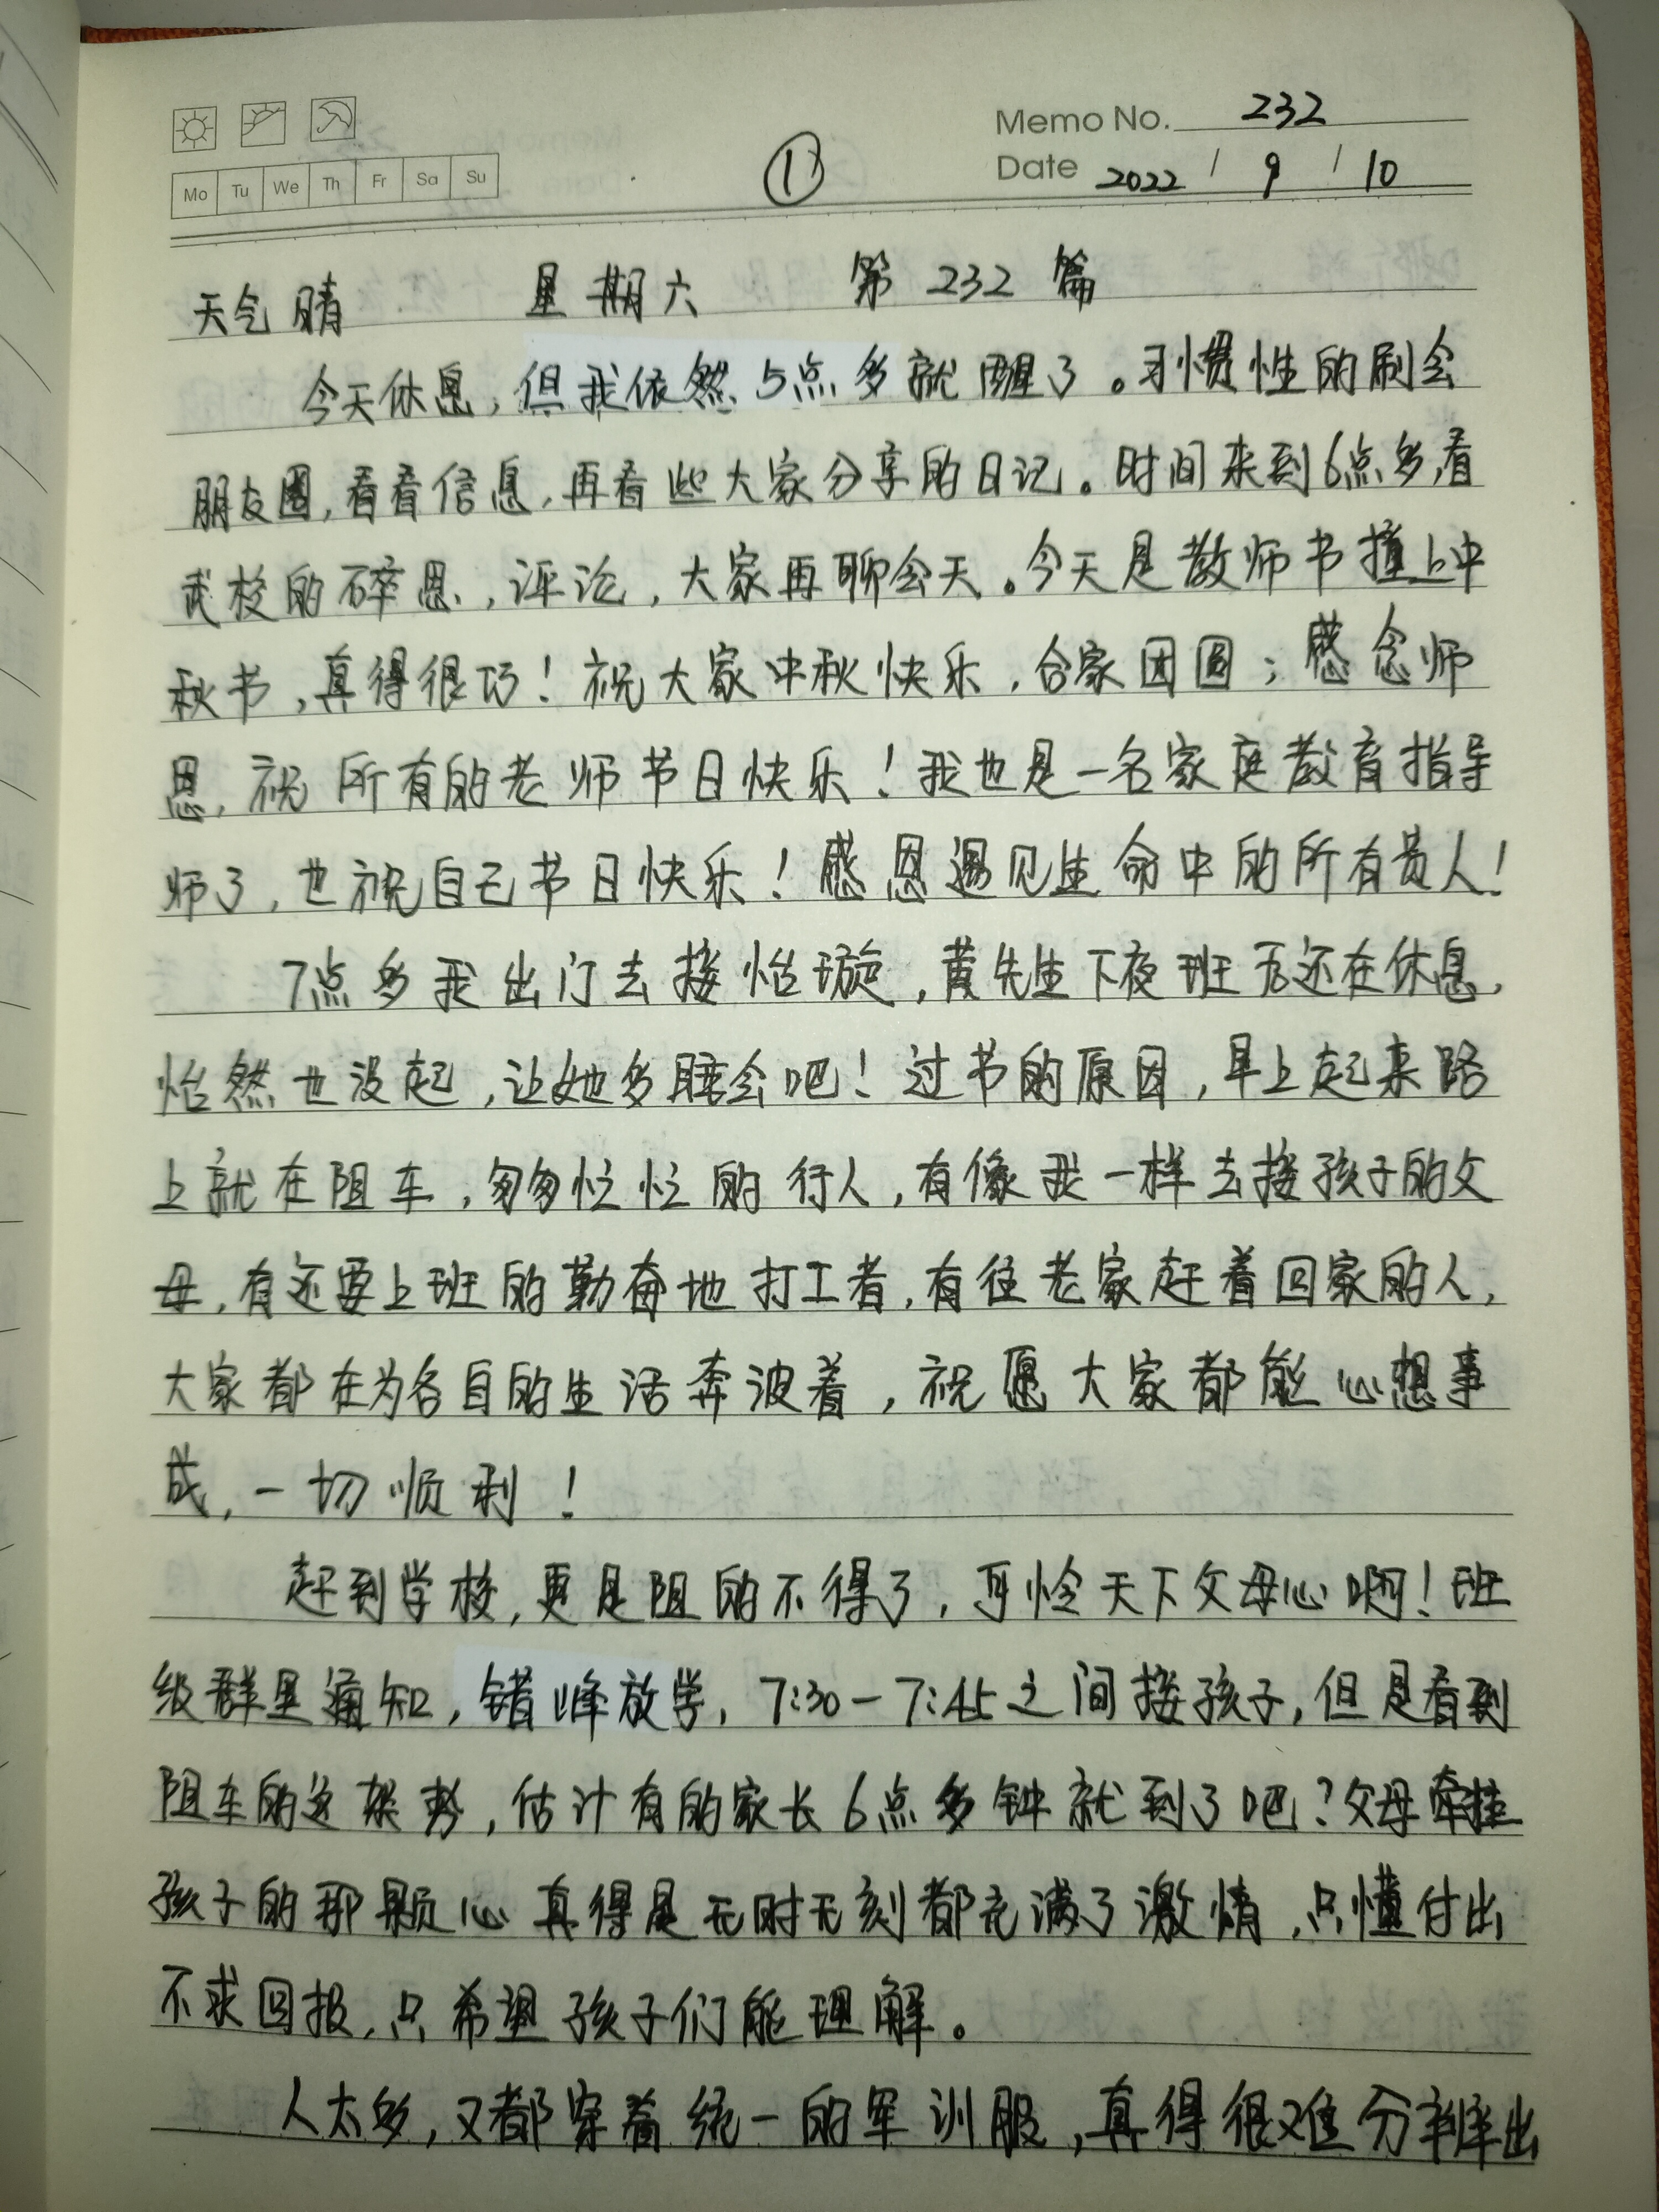 Memo No. 232
Mo Tu We Th Fr Sa Su
①
Date 2022 / 9 / 10
天气晴 星期六 第232篇
今天休息，但我依然5点多就醒了。习惯性的刷会
朋友圈，看看信息，再看些大家分享的日记。时间来到6点多，看
武校的碎思，评论，大家再聊会天。今天是教师节撞上中
秋节，真得很巧！祝大家中秋快乐，合家团圆；感念师
恩，祝所有的老师节日快乐！我也是一名家庭教育指导
师了，也祝自己节日快乐！感恩遇见生命中的所有贵人！
7点多我出门去接怡璇，黄先生下夜班后还在休息，
怡然也没起，让她多睡会吧！过节的原因，早上起来路
上就在阻车，匆匆忙忙的行人，有像我一样去接孩子的父
母，有还要上班的勤奋地打工者，有往老家赶着回家的人，
大家都在为各自的生活奔波着，祝愿大家都能心想事
成，一切顺利！
赶到学校，更是阻的不得了，可怜天下父母心啊！班
级群里通知，错峰放学，7:30－7:45之间接孩子，但是看到
阻车的这架势，估计有的家长6点多钟就到了吧？父母牵挂
孩子的那颗心真得是无时无刻都充满了激情，只懂付出
不求回报，只希望孩子们能理解。
人太多，又都穿着统一的军训服，真得很难分辨出